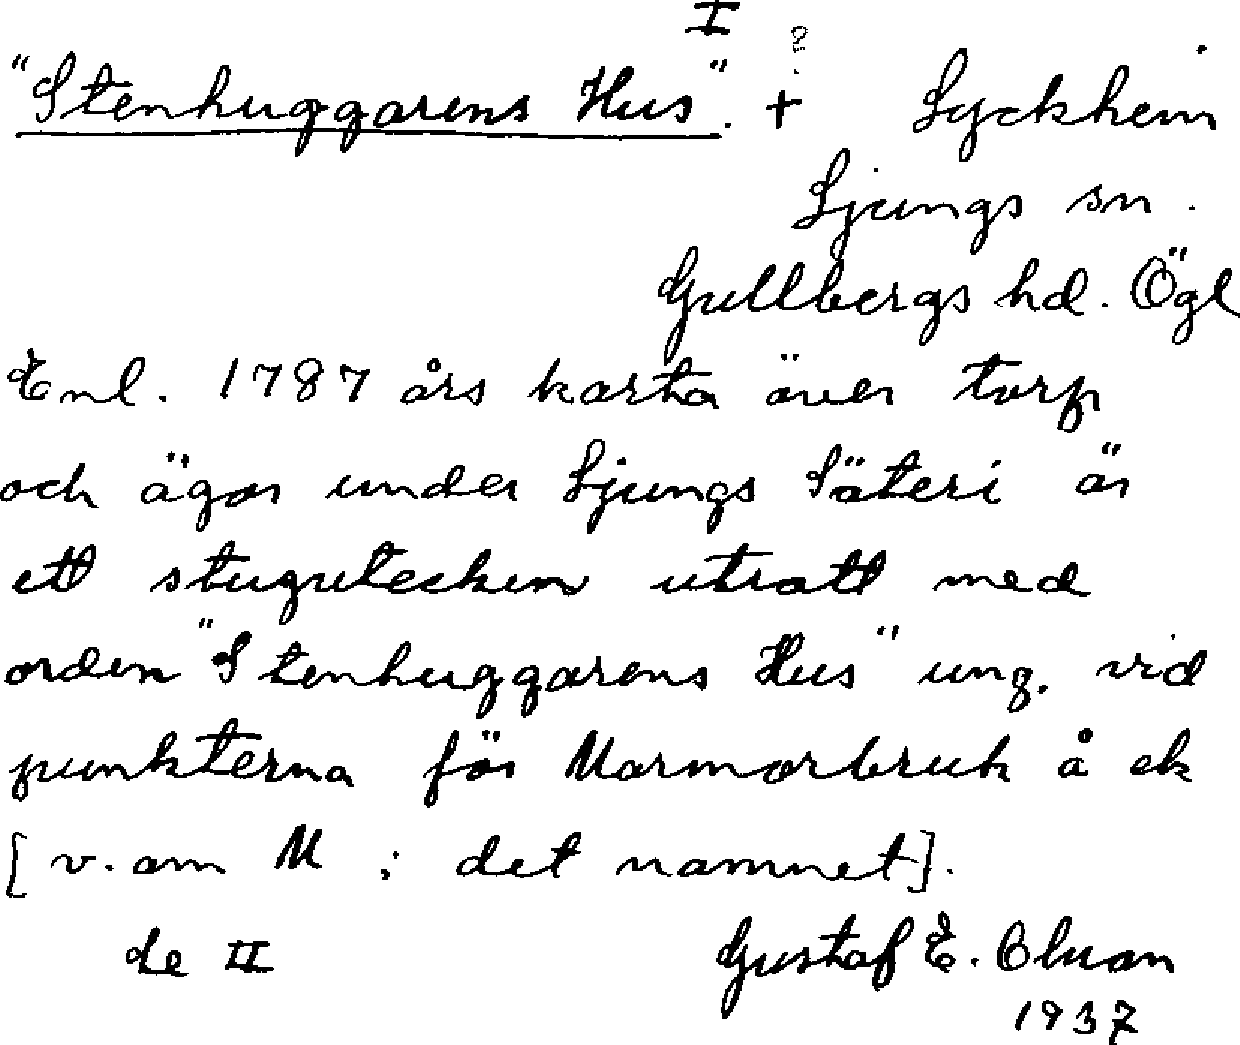 I
"Stenhuggarens Hus". + ? Lyckhem
Ljungs sn.
Gullbergs hd. Ögl
Enl. 1787 års karta över torp
och ägor under Ljungs Säteri är
ett stugutecken utsatt med
orden "Stenhuggarens Hus" ung. vid
punkterna för Marmorbruk å ek
[v. om M i det namnet].
de II Gustaf E.
1937